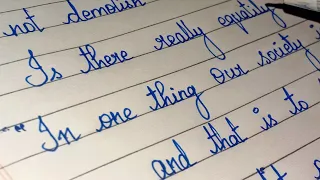 not demolish
Is there really equality
"In one thing our society
and that is to